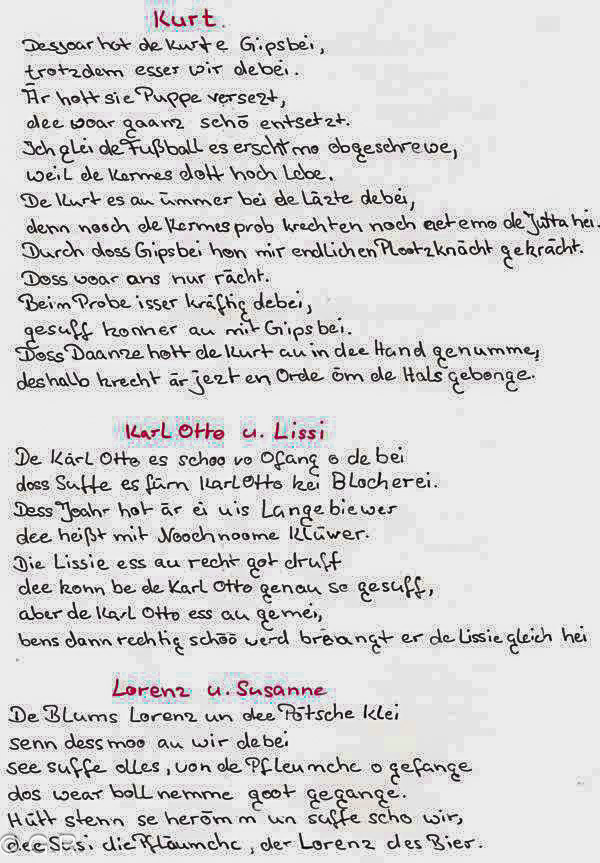 Kurt.
Dessjoar hot de Kurt e Gipsbei,
trotzdem esser wir debei.
Är hott sie Puppe versezt,
dee woar gaanz schö entsetzt.
Ich glei de Fußball es erscht mo obgeschrewe,
weil de Kermes dott hoch Lebe.
De Kurt es au ümmer bei de Läzte debei,
denn nooch de Kermesprob krechten noch net emo de Jutta hei.
Durch doss Gipsbei hon mir endlichen Plootzknächt gekrächt.
Doss woar ons nur rächt.
Beim Probe isser kräftig debei,
gesuff konner au mit Gipsbei.
Doss Daanze hott de Kurt au in dee Hand genumme,
deshalb krecht är jezt en Orde öm de Hals gebonge.
Karl Otto u. Lissi
De Karl Otto es schoo vo Ofang o debei
doss Suffe es fürn Karl Otto kei Blocherei.
Dess Joahr hot är ei uis Langebiewer
dee heißt mit Noochnoome Klüwer.
Die Lissie ess au recht got druff
dee konn be de Karl Otto genau so gesuff,
aber de Karl Otto ess au gemei,
bens dann rechtig schöö werd breangt er de Lissie gleich hei
Lorenz u. Susanne
De Blums Lorenz un dee Pötsche Klei
senn dessmoo au wir debei
see suffe olles, von de Pfleumche o gefange
dos wear boll nemme goot gegange.
Hütt stenn se heröm m un suffe scho wir,
dee Susi die Pfläumche, der Lorenz des Bier.